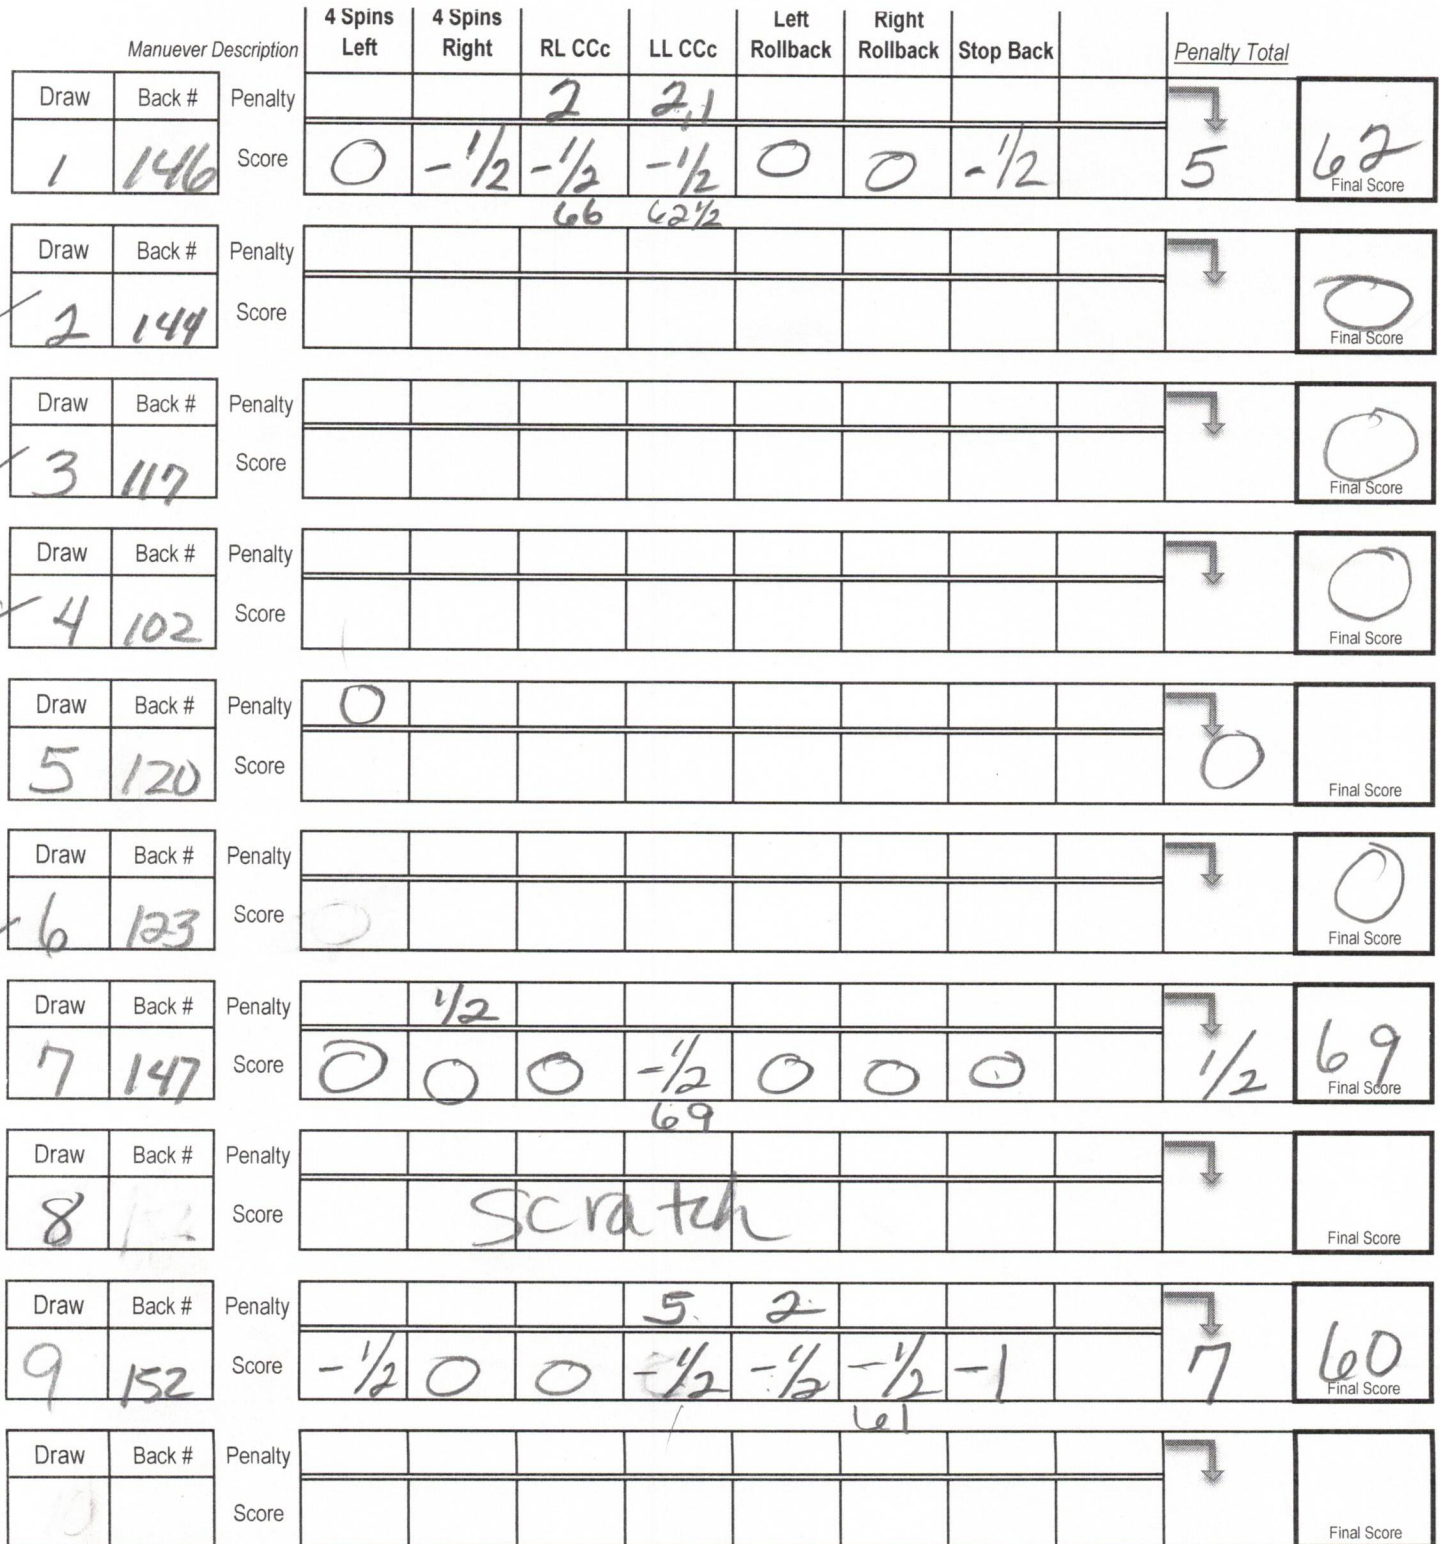 4 Spins 4 Spins Left Right
Manuever Description Left Right RL CCc LL CCc Rollback Rollback Stop Back Penalty Total
Draw Back # Penalty 2 2,1
1 146 Score 0 -1/2 -1/2 -1/2 0 0 -1/2 5 62
Final Score
66 62 1/2
Draw Back # Penalty
2 144 Score 0
Final Score
Draw Back # Penalty
3 117 Score 0
Final Score
Draw Back # Penalty
4 102 Score 0
Final Score
Draw Back # Penalty 0
5 120 Score 0
Final Score
Draw Back # Penalty
6 123 Score 0
Final Score
Draw Back # Penalty 1/2
7 147 Score 0 0 0 -1/2 0 0 0 1/2 69
Final Score
69
Draw Back # Penalty
8 Score Scratch
Final Score
Draw Back # Penalty 5 2
9 152 Score -1/2 0 0 -1/2 -1/2 -1/2 -1 7 60
Final Score
61
Draw Back # Penalty
Score
Final Score